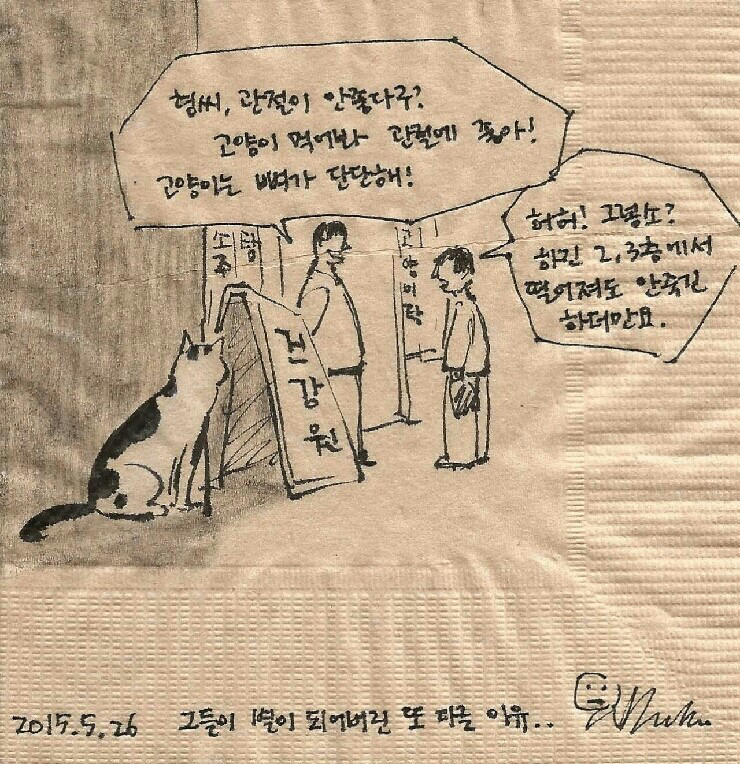 형씨, 관절이 안좋다구?
고양이 먹어봐 관절에 좋아!
고양이는 뼈가 단단해!
허허! 그렇소?
하긴 2,3층에서
떨어져도 안죽긴
하더만요.
소주
고양이탕
건강원
2015.5.26 그들이 별이 되어버린 또 다른 이유..